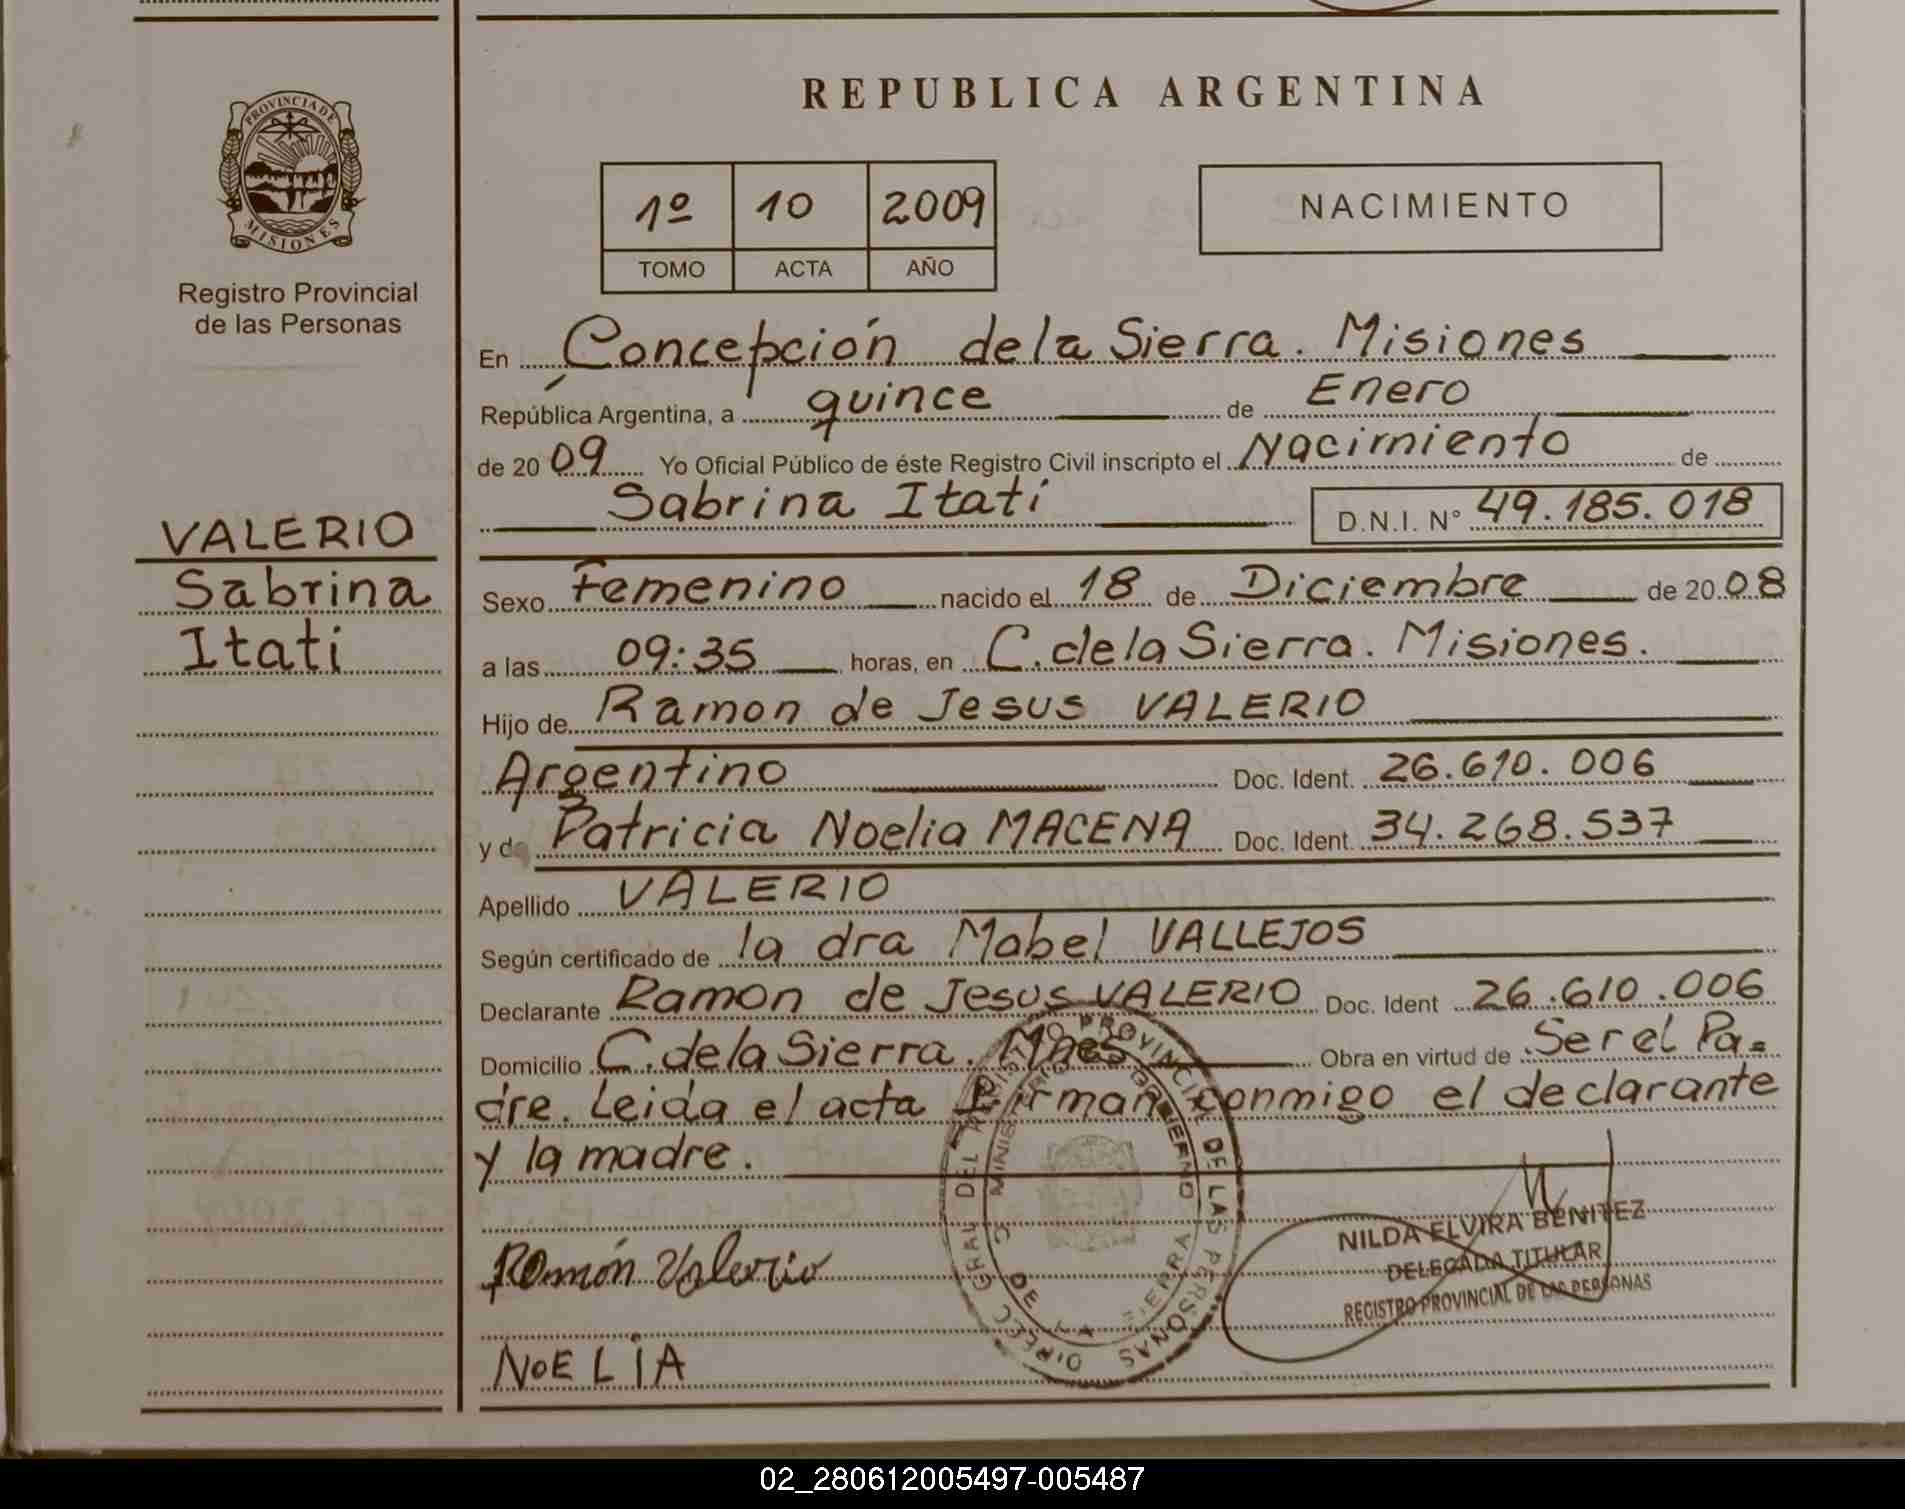 PROVINCIA DE
MISIONES
Registro Provincial
de las Personas
VALERIO
Sabrina
Itatí
REPUBLICA ARGENTINA
1º 10 2009
TOMO ACTA AÑO
NACIMIENTO
En Concepción de la Sierra. Misiones
República Argentina, a quince de Enero
de 2009 Yo Oficial Público de éste Registro Civil inscripto el Nacimiento de
Sabrina Itatí D.N.I. N° 49.185.018
Sexo Femenino nacido el 18 de Diciembre de 2008
a las 09:35 horas, en C. de la Sierra. Misiones.
Hijo de Ramon de Jesus VALERIO
Argentino Doc. Ident. 26.610.006
y de Patricia Noelia MACENA Doc. Ident. 34.268.537
Apellido VALERIO
Según certificado de la dra Mabel VALLEJOS
Declarante Ramon de Jesus VALERIO Doc. Ident 26.610.006
Domicilio C. de la Sierra. Mnes Obra en virtud de Ser el Pa=
dre. Leida el acta Firman conmigo el declarante
y la madre.
DIREC GRAL DEL REGISTRO PROVINCIAL DE LAS PERSONAS
MINISTERIO GOBIERNO
NILDA ELVIRA BENITEZ
DELEGADA TITULAR
REGISTRO PROVINCIAL DE LAS PERSONAS
Ramón Valerio
NOELIA
02_280612005497-005487